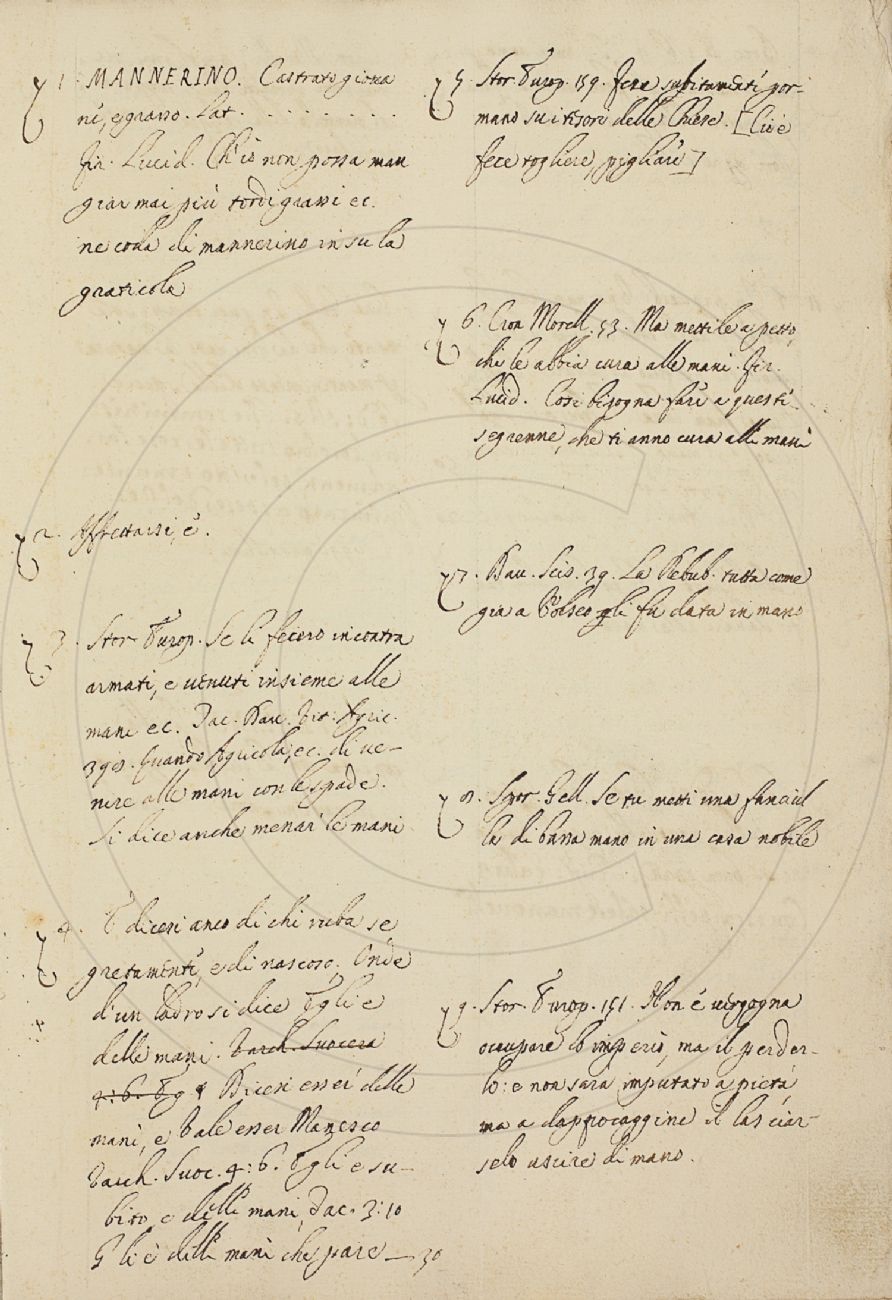 1. MANNERINO. Castrato giova
ne, e grasso. Lat. . . . . . . . . .
Fir. Lucid. Ch'io non possa man
giar mai più tordi grassi ec.
ne coda di mannerino in su la
graticola
2. Affrettarsi, e.
3. Stor. Europ. Se li fecero incontra
armati, e venuti insieme alle
mani ec. Tac. Dav. Vit. Agric.
398. Quando Agricola, ec. di ve-
nire alle mani con le spade.
Si dice anche menar le mani
4. E dicesi anco di chi ruba se
gretamente, e di nascoso. Onde
d'un ladro si dice Egli e
delle mani. Varch. Suocera
4:6. Eg Dicesi essei delle
mani, e Vale esser Manesco
Varch. Suoc. 4:6. Egli e su-
bito, e delle mani, Tac. 3:10
Gli è delle mani che pare — 30
5. Stor. Europ. 159. Fece subitamente por-
mano su i tesori delle Chiese. [Cioè
fece togliere, pigliare]
6. Cron Morell. 53. Ma mettile a petto
chi le abbia cura alle mani. Fir.
Lucid. Così bisogna fare a queste
segrenne, che ti anno cura alle mani
7. Dav. Scis. 39. La Rebub. tutta come
gia a Volseo gli fu data in mano
8. Spor. Gell. Se tu metti una fanciul
la di bassa mano in una casa nobile
9. Stor. Europ. 151. Non è vergogna
occupare lo imperio, ma il perder-
lo: e non sara imputato a pietà
ma a dappocaggine il lasciar-
selo uscire di mano.